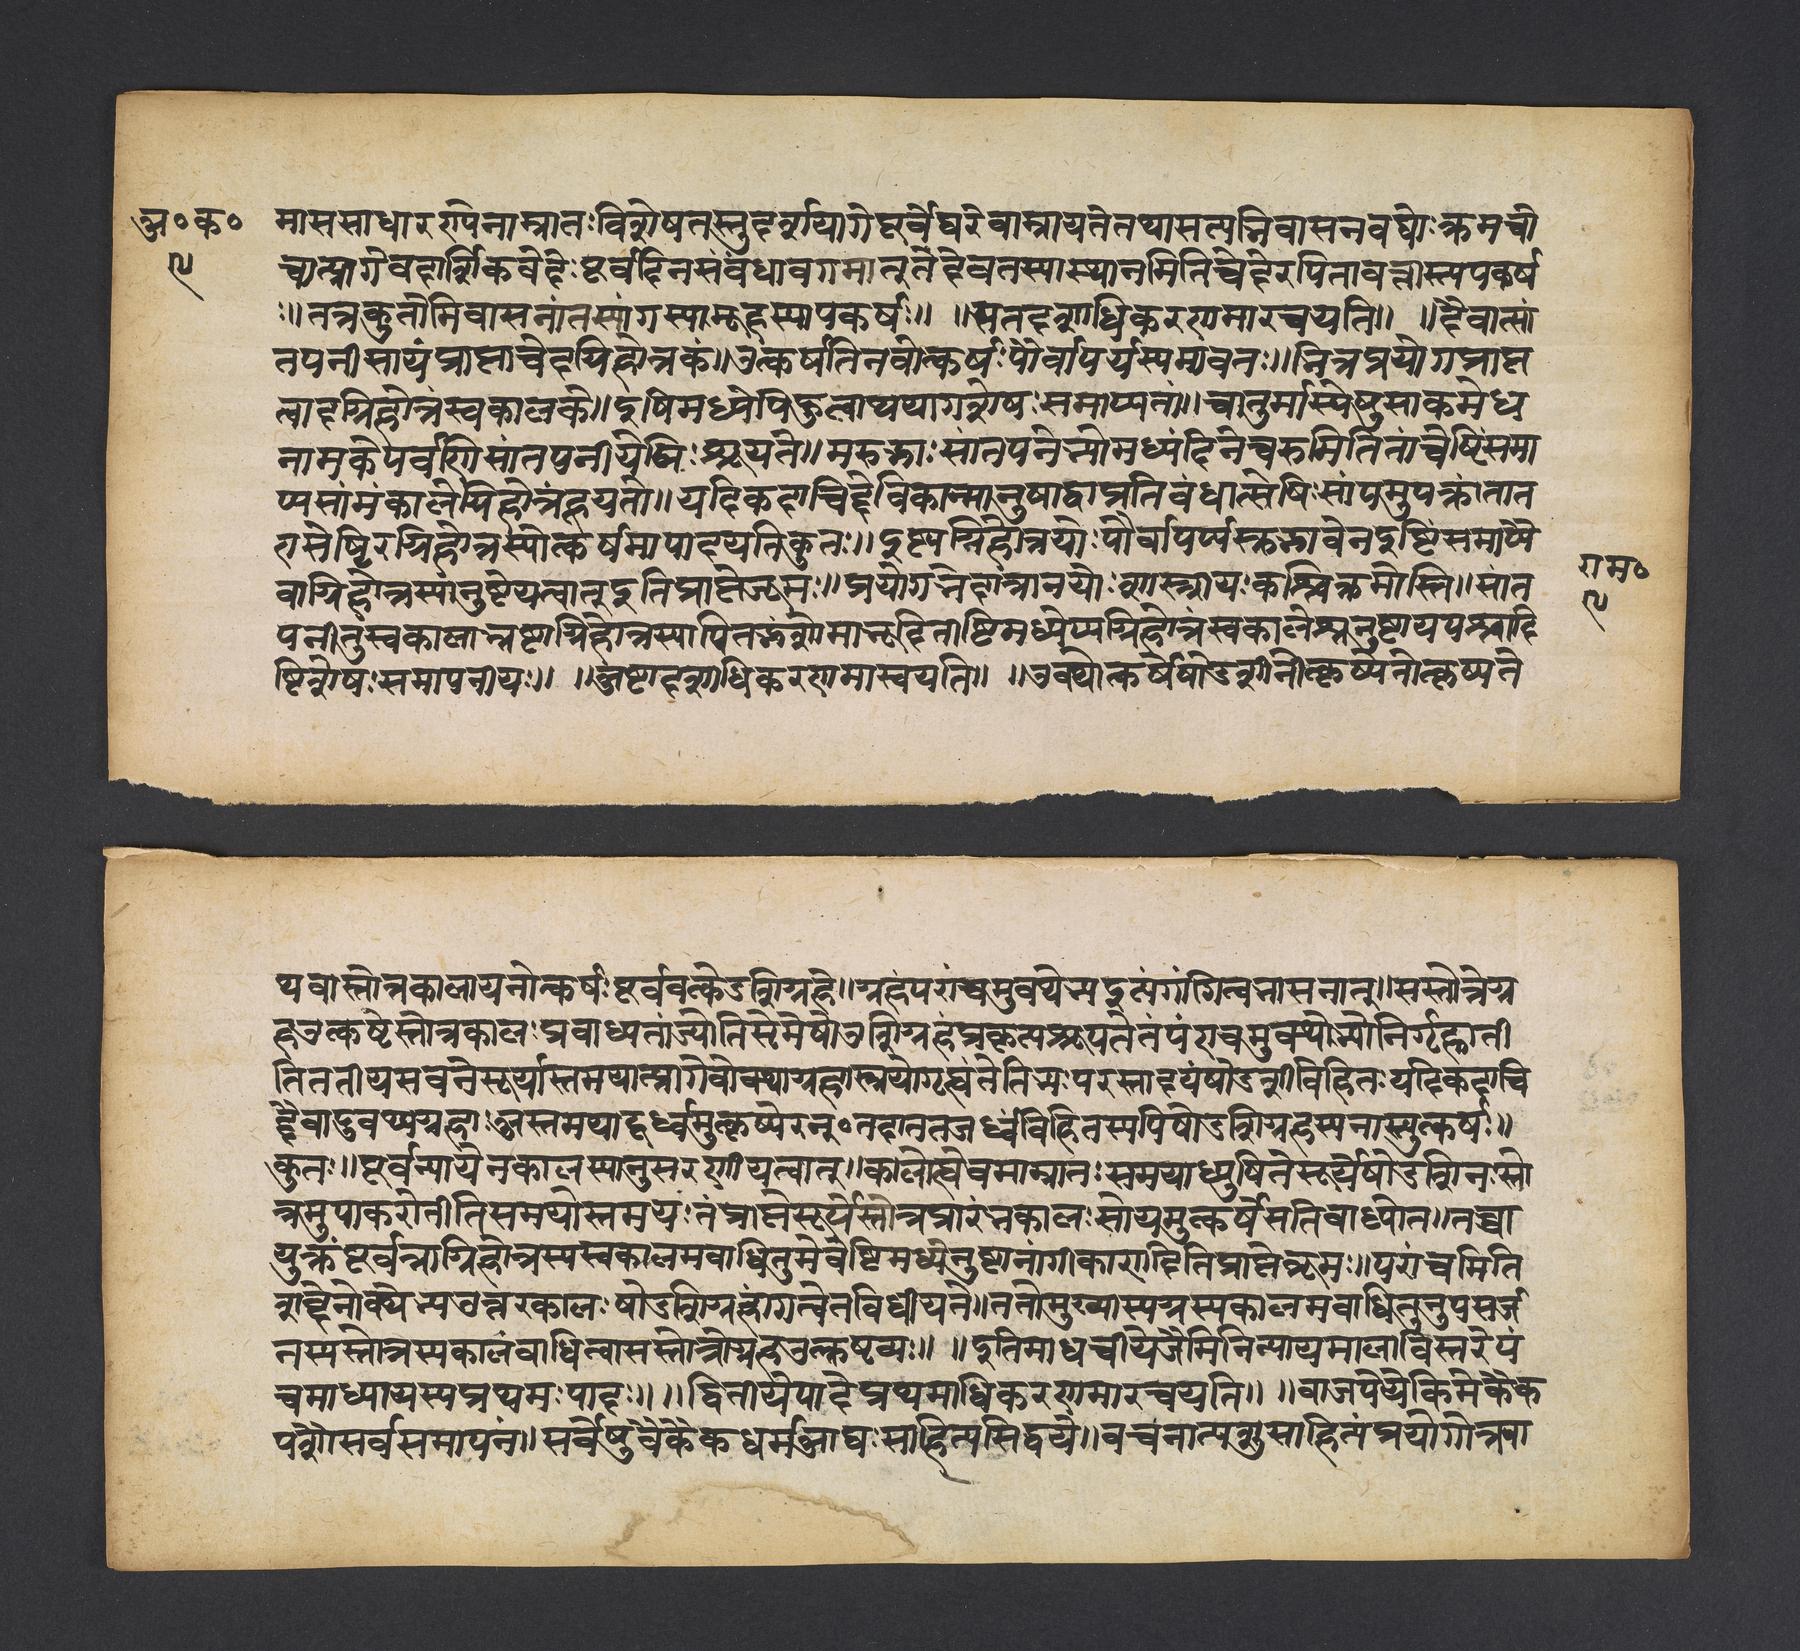 अ॰क॰
५
माससाधारण्येनाम्नातःविशेषतस्तुदर्शयागेपूर्वेद्युरेवाम्नायतेतथासत्यभिवासनवेद्योःक्रमबो
धात्प्रागेवदार्शिकवेदेःपूर्वदिनसंबंधावगमात्तदैवतस्यास्थानमितिचेद्वेदेरपितावन्नास्त्यपकर्ष
ः॥तत्रकुतोभिवासनांतसांगस्यामूहस्यापकर्षः॥ ॥सप्तदशाधिकरणमारचयति॥ ॥दैवात्सां
तपनीसायंप्राप्ताचेदग्निहोत्रकं॥उत्कर्षतिनवोत्कर्षःपौर्वापर्यस्यसंभवतः॥भिन्नप्रयोगप्राप्त
त्वादग्निहोत्रंस्वकालके॥इष्टिमध्येपिहुत्वाथयागशेषःसमाप्यतां॥चातुर्मास्येषुसाकमेध
नामकेपर्वणिसांतपनीयेष्टिःश्रूयते॥मरुद्भ्यःसांतपनेभ्योमध्यंदिनेचरुमितितांचेष्टिंसमा
प्यसायंकालेग्निहोत्रंहूयते॥यदिकदाचिद्दैविकान्मानुषाद्वाप्रतिबंधात्सेष्टिःसायमुपक्रांतात
दासेष्टिरग्निहोत्रस्योत्कर्षमापादयतिकुतः॥इष्ट्यग्निहोत्रयोःपौर्वापर्यसद्भावेनइष्टिंसमाप्यै
वाग्निहोत्रस्यानुष्ठेयत्वात्इतिप्राप्तेब्रूमः॥प्रयोगभेदान्नानयोःशास्त्रीयःकश्चित्क्रमोस्ति॥सांत
पनीतुस्वकालाद्भ्रष्टाग्निहोत्रस्यापितद्भ्रंशोमाभूदितीष्टिमध्येप्यग्निहोत्रंस्वकालेनुष्ठायपश्चादि
ष्टिशेषःसमापनीयः॥ ॥अष्टादशाधिकरणमारचयति॥ ॥उक्थ्योत्कर्षेषोडशीनोत्कृष्यतोत्कृष्यते
राम॰
५
थवास्तोत्रकालायनोत्कर्षःपूर्ववत्षोडशिग्रहे॥ग्रहंपरांचमुक्थ्येभ्यइत्यंगांगित्वभासनात्॥सस्तोत्रेग्र
हउत्कृष्टेस्तोत्रकालःप्रबाध्यतांज्योतिष्टोमेषोडशिग्रहंप्रकृत्यश्रूयतेतंपरांचमुक्थ्येभ्योनिर्गृह्णाती
तितृतीयसवनेसूर्यास्तमयात्प्रागेवोक्थ्याग्रहास्त्रयोगृह्यंतेतेभ्यःपरस्तादयंषोडशीविहितःयदिकदाचि
द्दैवादुक्थ्यग्रहाःअस्तमयादूर्ध्वमुत्कृष्येरन्॰तदानततऊर्ध्वंविहितस्यापिषोडशिग्रहस्यनास्त्युत्कर्षः॥
कुतः॥पूर्वन्यायेनकालस्यानुसरणीयत्वात्॥कालोह्येवमाम्नातःसमयाध्युषितेसूर्येषोडशिनःस्तो
त्रमुपाकरोतीतिसमयोस्तमयःतंप्राप्तेसूर्येस्तोत्रप्रारंभकालःसोयमुत्कर्षेसतिबाध्येत॥तच्चा
युक्तंपूर्वत्राग्निहोत्रस्यस्वकालमबाधितुमेवेष्टिमध्येनुष्ठानांगीकारादितिप्राप्तेब्रूमः॥परांचमिति
शब्देनोक्थ्येभ्यउत्तरकालःषोडशिग्रहांगत्वेनविधीयते॥ततोमुख्यास्यग्रस्यकालमबाधितुनुपसर्ज
नस्यस्तोत्रस्यकालंबाधित्वासस्तोत्रोग्रहउत्क्रष्टव्यः॥ ॥इतिमाधवीयेजैमिनिन्यायमालाविस्तरेपं
चमाध्यायस्यप्रथमःपादः॥ ॥द्वितीयेपादेप्रथमाधिकरणमारचयति॥ ॥वाजपेयेकिमेकैक
पशौसर्वसमापनं॥सर्वेषुवैकैकधर्मआद्यःसाहित्यसिद्धये॥वचनात्पशुसाहित्यंप्रयोगोत्रवा